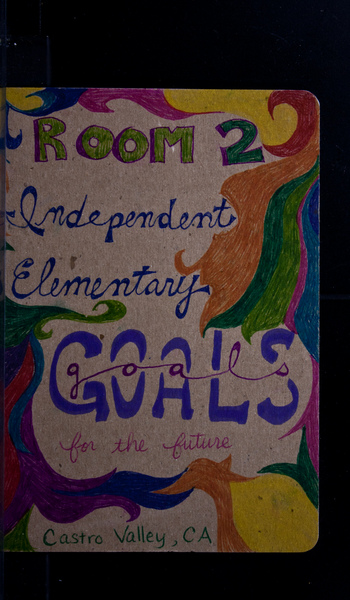 ROOM 2
Independent
Elementary
GOALS
goals
for the future
Castro Valley, CA